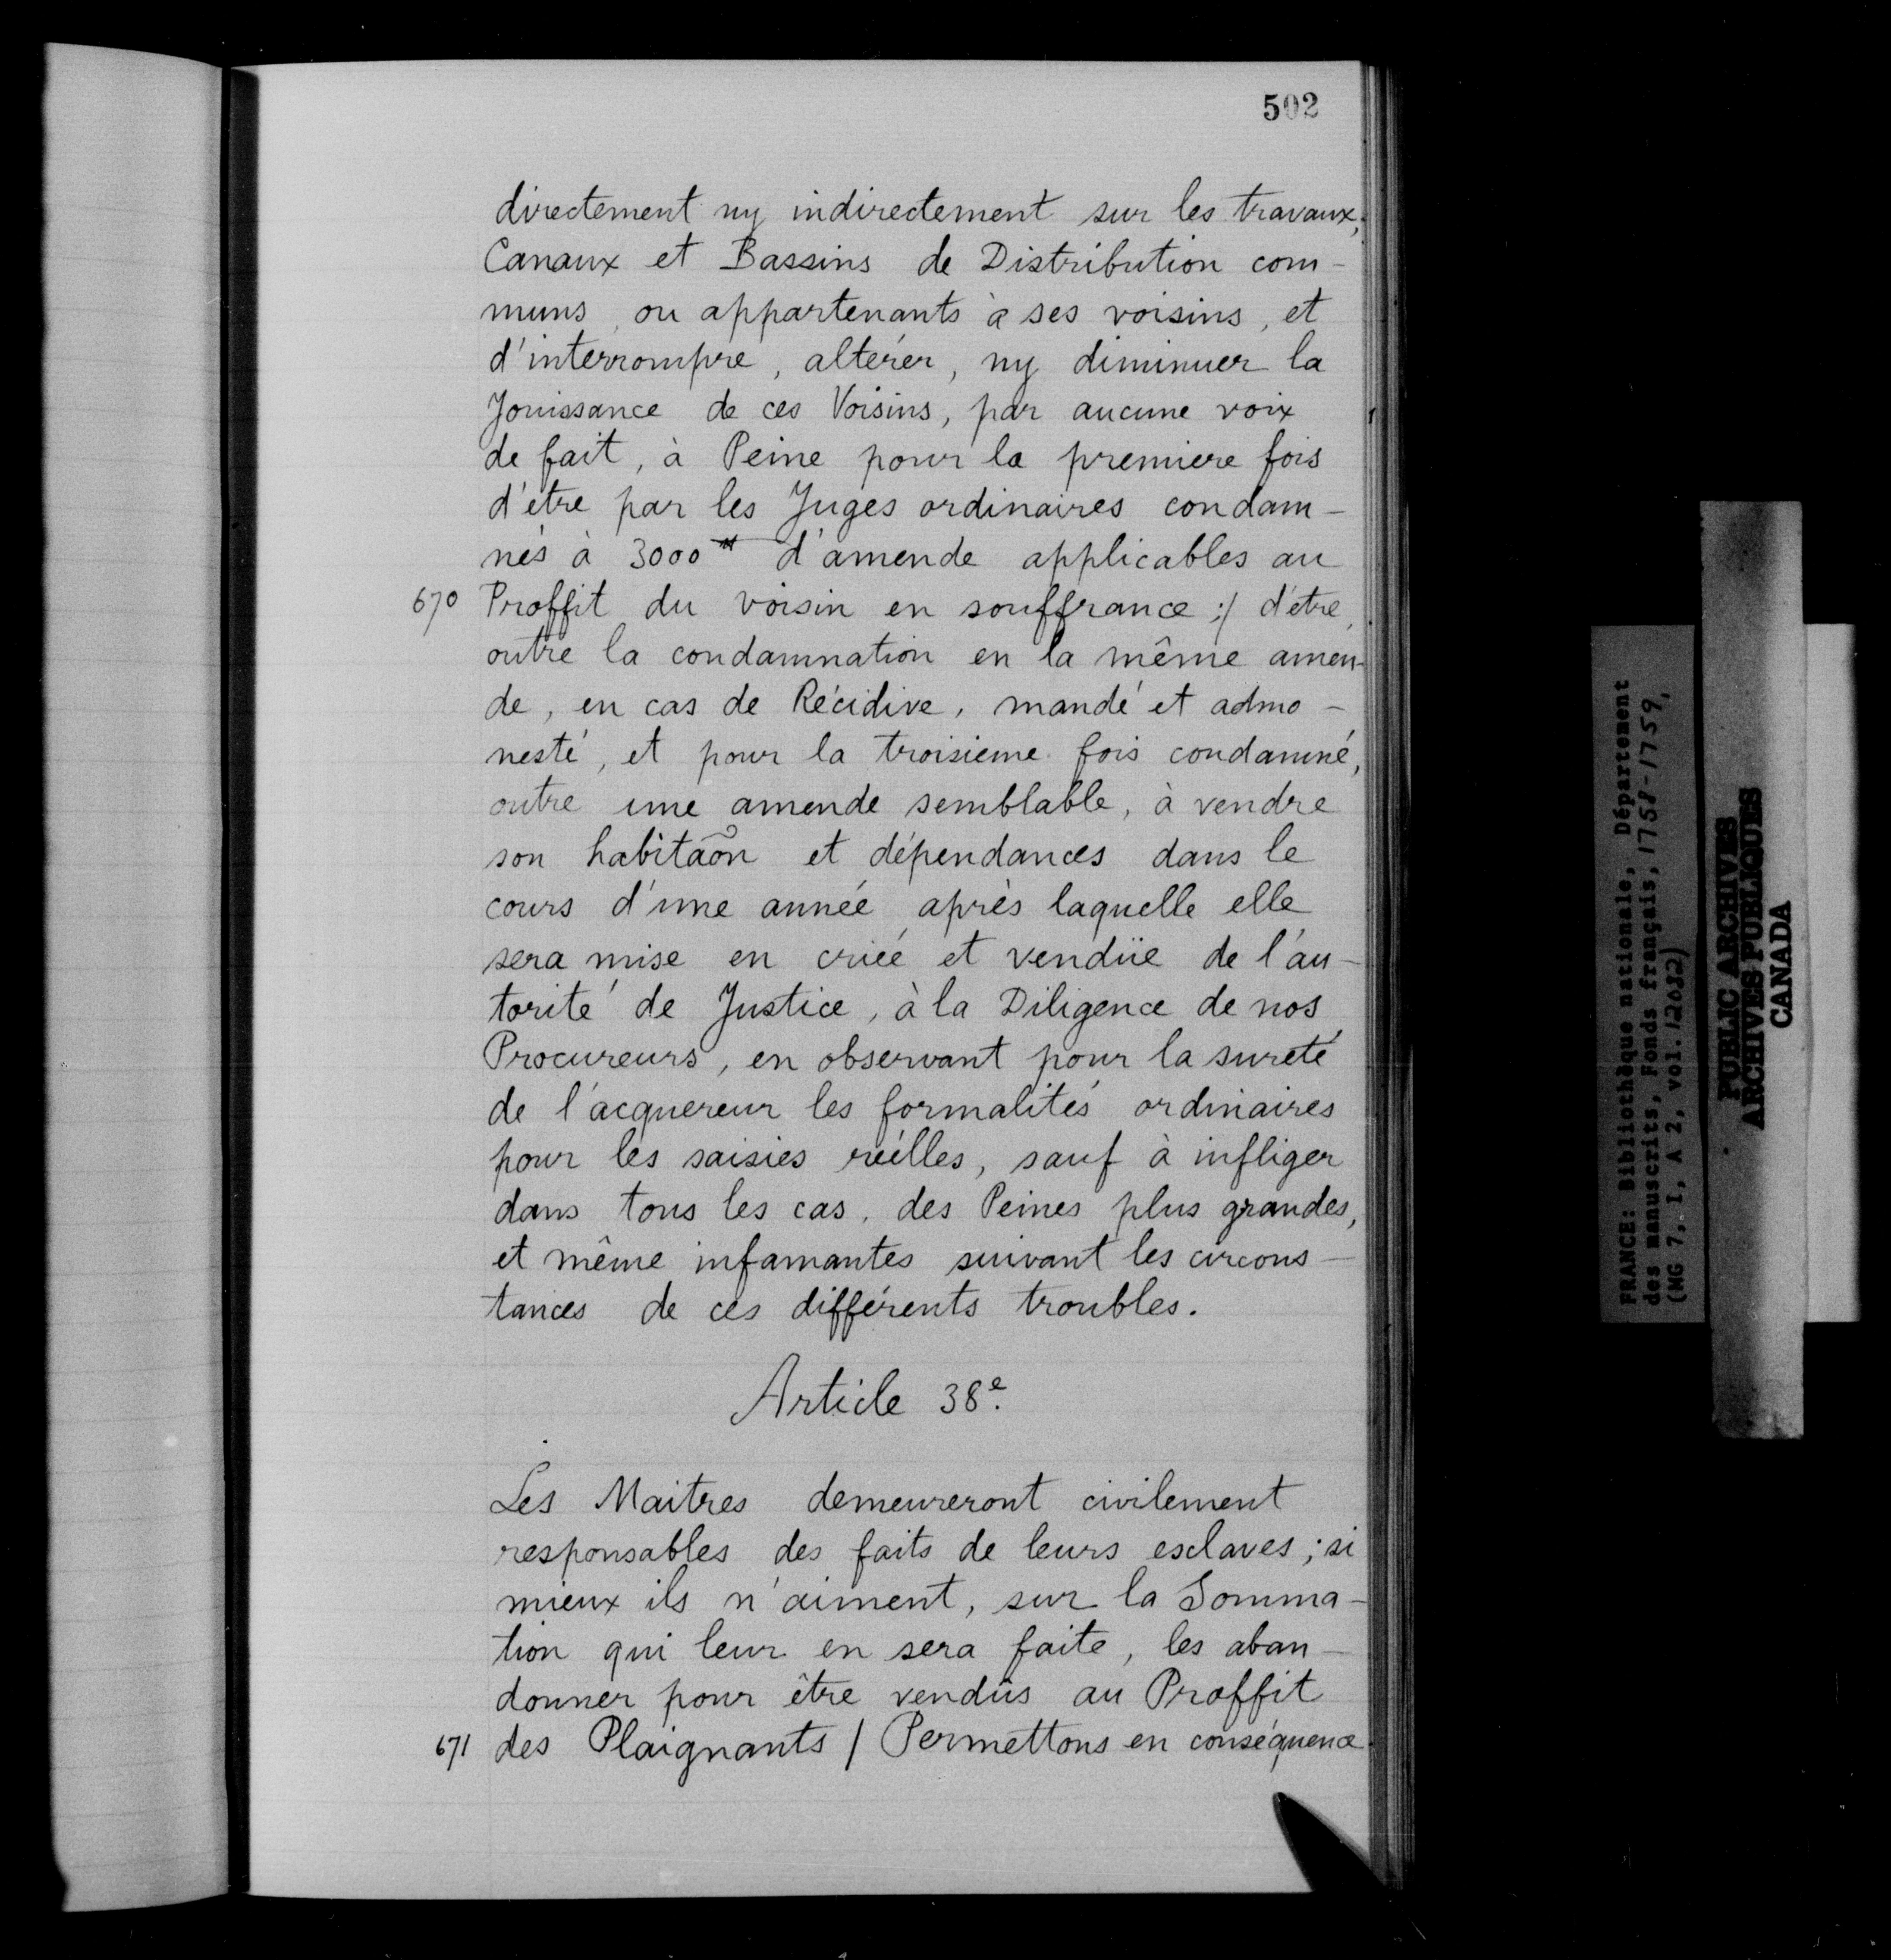 502
directement ny indirectement sur les travaux,
Canaux et Bassins de Distribution com-
muns, ou appartenants à ses voisins, et
d'interrompre, altérer, ny diminuer la
Jouissance de ces Voisins, par aucune voix
de fait, à Peine pour la premiere fois
d'être par les Juges ordinaires condam-
nés à 3000ᵗᵗ d'amende applicables au
670 Proffit du voisin en souffrance :/ d'être,
outre la condamnation en la même amen-
de, en cas de Récidive, mandé et admo-
nesté, et pour la troisieme fois condamné,
outre une amende semblable, à vendre
son habitaõn et dépendances dans le
cours d'une année, après laquelle elle
sera mise en criée et vendüe de l'au-
torité de Justice, à la Diligence de nos
Procureurs, en observant pour la sureté
de l'acquereur les formalités ordinaires
pour les saisies réelles, sauf à infliger
dans tous les cas, des Peines plus grandes,
et même infamantes suivant les circons-
tances de ces différents troubles.
Article 38e.
Les Maitres demeureront civilement
responsables des faits de leurs esclaves; si
mieux ils n'aiment, sur la Somma-
tion qui leur en sera faite, les aban-
donner pour être vendûs au Proffit
671 des Plaignants / Permettons en conséquence
FRANCE: Bibliothèque nationale, Département
des manuscrits, Fonds français, 1758-1759,
(MG 7, I, A 2, vol. 12082)
PUBLIC ARCHIVES
ARCHIVES PUBLIQUES
CANADA